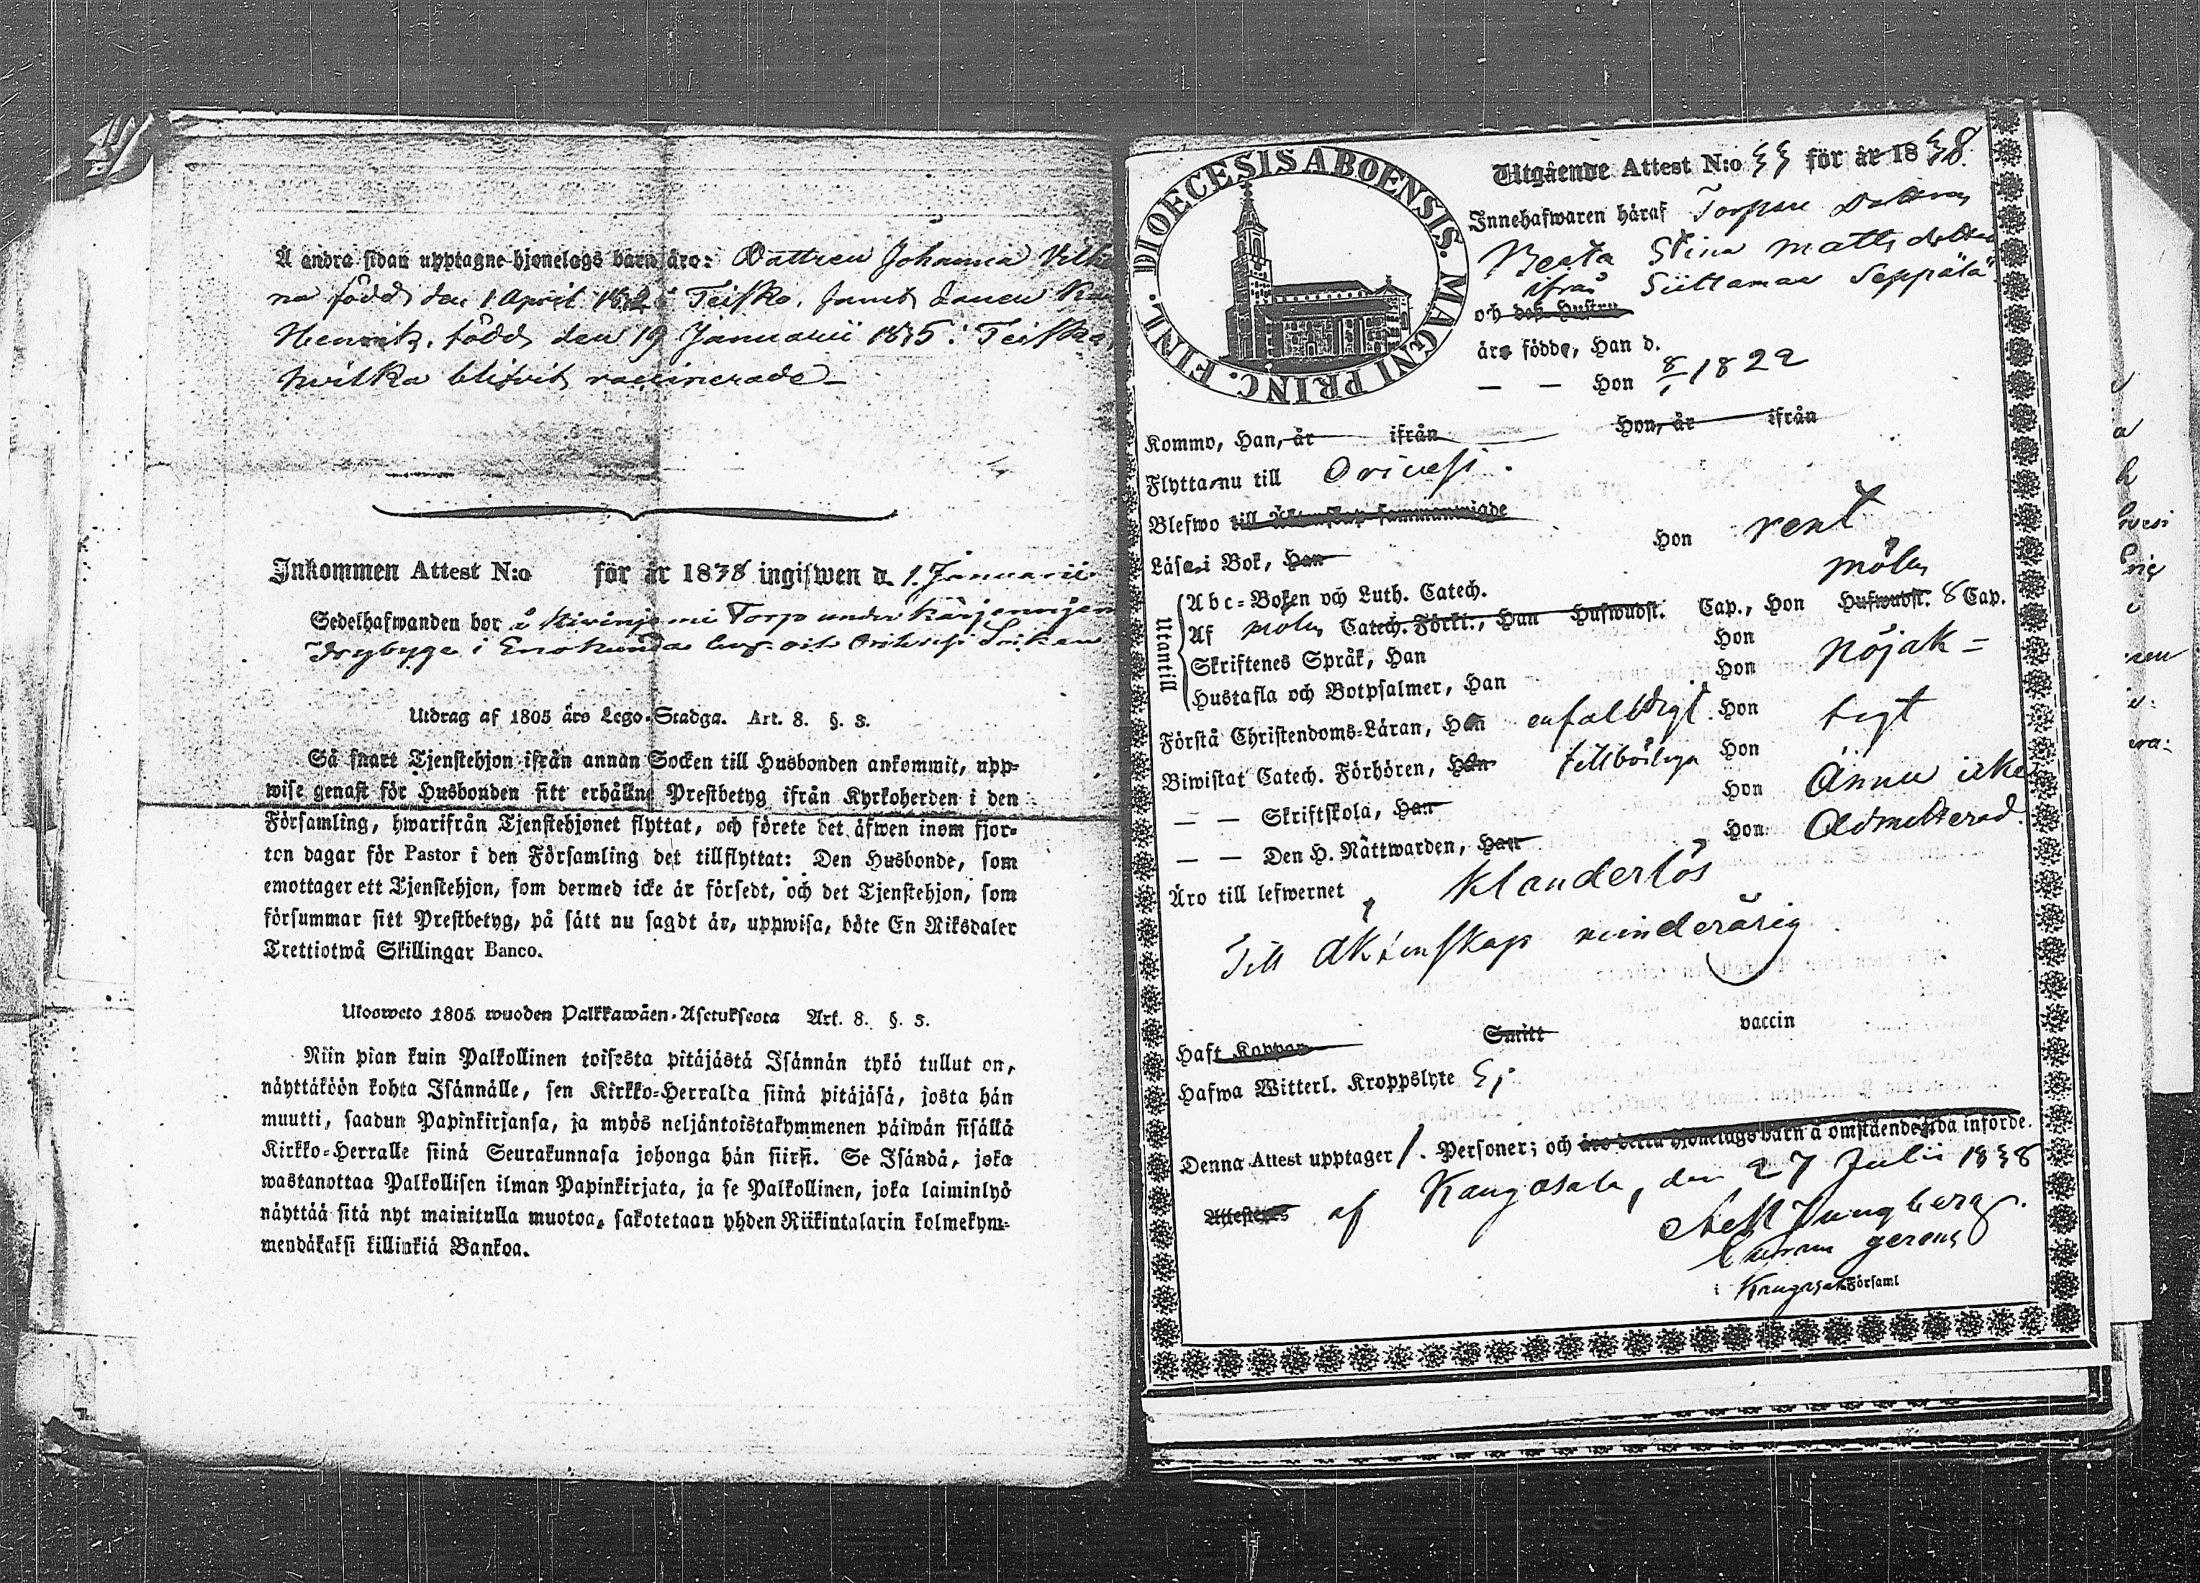 Å andra sidan upptagne hjonelags barn äro: Dottren Johanna Vilhe
na född den 1 April 1832 i Teisko, samt sonen
Henrik, född den 19 Januarii 1835 i Teisko,
hvilka blifvit vaccinerade
Inkommen Attest N:o för år 1838 ingifwen d. 1. Januarii
Sedelhafwanden bor å Kivinjemi Torp under
i Enokunda by och Orihvesi Soken
Utdrag af 1805 års Lego-Stadga. Art. 8. §. 3.
Så snart Tjenstehjon ifrån annan Socken till Husbonden ankommit, upp-
wise genast för Husbonden sitt erhållne Prestbetyg ifrån Kyrkoherden i den
Församling, hwarifrån Tjenstehjonet flyttat, och förete det äfwen inom fjor-
ton dagar för Pastor i den Församling det tillflyttat: Den Husbonde, som
emottager ett Tjenstehjon, som dermed icke är försedt, och det Tjenstehjon, som
försummar sitt Prestbetyg, på sätt nu sagdt är, uppwisa, böte En Riksdaler
Trettiotwå Skillingar Banco.
Ulosweto 1805 wuoden Palkkawäen-Asetuksesta Art. 8. §. 3.
Niin pian kuin Palkollinen toisesta pitäjästä Isännän tykö tullut on,
näyttäköön kohta Isännälle, sen Kirkko-Herralda siinä pitäjäsä, josta hän
muutti, saadun Papinkirjansa, ja myös neljäntoistakymmenen päiwän sisällä
Kirkko-Herralle siinä Seurakunnasa johonga hän siirsi. Se Isändä, joka
wastanottaa Palkollisen ilman Papinkirjata, ja se Palkollinen, joka laiminlyö
näyttää sitä nyt mainitulla muotoa, sakotetaan yhden Riikintalarin kolmekym-
mendäkaksi killinkiä Bankoa.
DIOECESIS ABOENSIS. MAGNI PRINC. FINL.
Utgående Attest N:o 33 för år 1838.
Innehafwaren häraf Torpare Dottren
Beata Stina Matts dotter
ifrån Siittamaa Seppälä
och dess Hustru
äro födde, Han d.
— — Hon 8/1 1822
Kommo, Han, år ifrån Hon, år ifrån
Flytta nu till Orivesi.
Blefwo till Äktenskap sammanwigde
Läsa i Bok, Han Hon rent
Utantill
Abc-Boken och Luth. Catech. möln
Af möln Catech. Förkl., Han Hufwudst. Cap., Hon Hufwudst. 8 Cap.
Skriftenes Språk, Han Hon
Hustafla och Botpsalmer, Han Hon nöjak-
Förstå Christendoms-Läran, Han enfaldigt Hon tigt
Biwistat Catech. Förhören, Han tillbörliga Hon
— — Skriftskola, Han Hon Ännu icke
— — Den H. Nattwarden, Han Hon Admitterad.
Äro till lefwernet klanderlös
Till Äktenskap minderårig
Haft Koppor Smitt vaccin
Hafwa Witterl. Kroppslyte Ej
Denna Attest upptager 1. Personer; och äro detta Hjonelags barn å omstående sida införde.
Attesteras af Kangasala, den 27 Julii 1838
Ljungberg
gerens
i Kangasala Församl